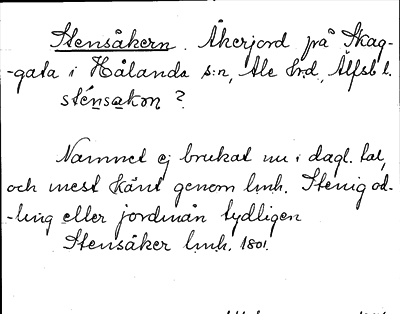 Stensåkern. Åkerjord på Skag-
-gata i Hålanda s:n, Ale hrd, Älfsb l.
sténsakon ?
Namnet ej brukat nu i dagl. tal,
och mest känt genom lmh. Stenig od-
-ling eller jordmån tydligen
Stensåker lmh. 1801.